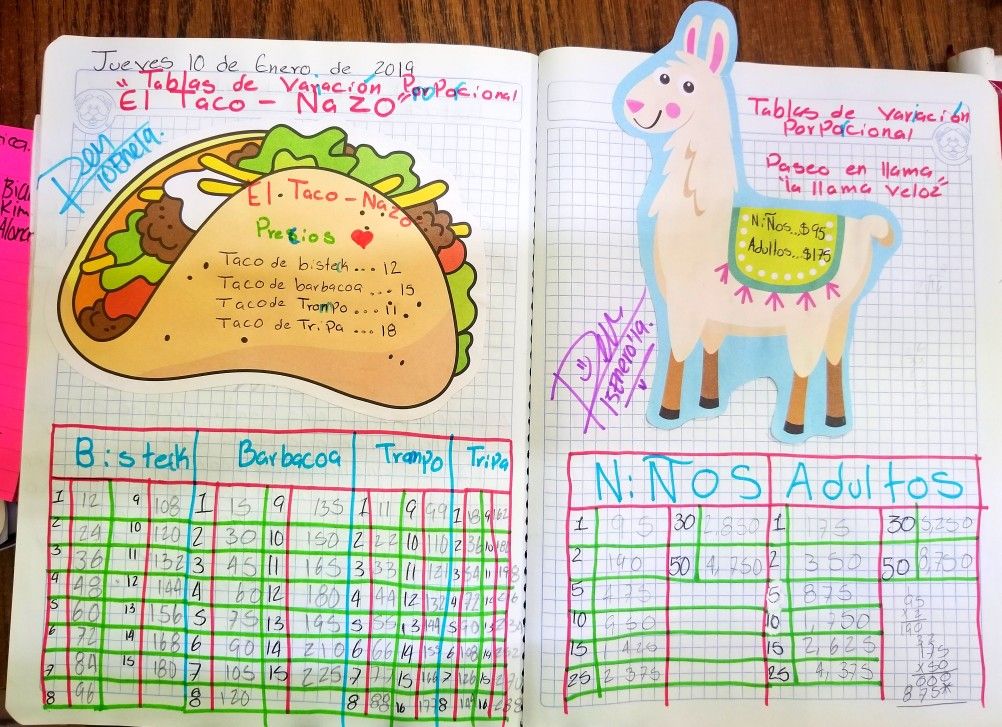 Jueves 10 de Enero de 2019
"Tablas de Variación PorPorcional
El Taco - Nazo"
10Ene19.
El Taco - Nazo
Precios
Taco de bisteck ... 12
Taco de barbacoa ... 15
Taco de Trompo ... 11
Taco de Tripa ... 18
Bisteck Barbacoa Trompo Tripa
1 12 9 108 1 15 9 135 1 11 9 99 1 18 9 162
2 24 10 120 2 30 10 150 2 22 10 110 2 36 10 180
3 36 11 132 3 45 11 165 3 33 11 121 3 54 11 198
4 48 12 144 4 60 12 180 4 44 12 132 4 72 12
5 60 13 156 5 75 13 195 5 55 13 144 5 90 13
6 72 14 168 6 90 14 210 6 66 14 6 108 14
7 84 15 180 7 105 15 225 7 77 15 7 126 15
8 96 8 120 8 88 16 8 16
Tablas de variación
PorPorcional
Paseo en llama
"la llama veloz"
Niños...$95
Adultos...$175
15Enero'19.
NiÑOS Adultos
1 95 30 2,850 1 175 30 5250
2 190 50 4,750 2 350 50 8,750
5 475 5 875
10 950 10 1,750
15 1425 15 2,625
25 2 375 25 4,375
95
190
175
x50
000
875
Kim